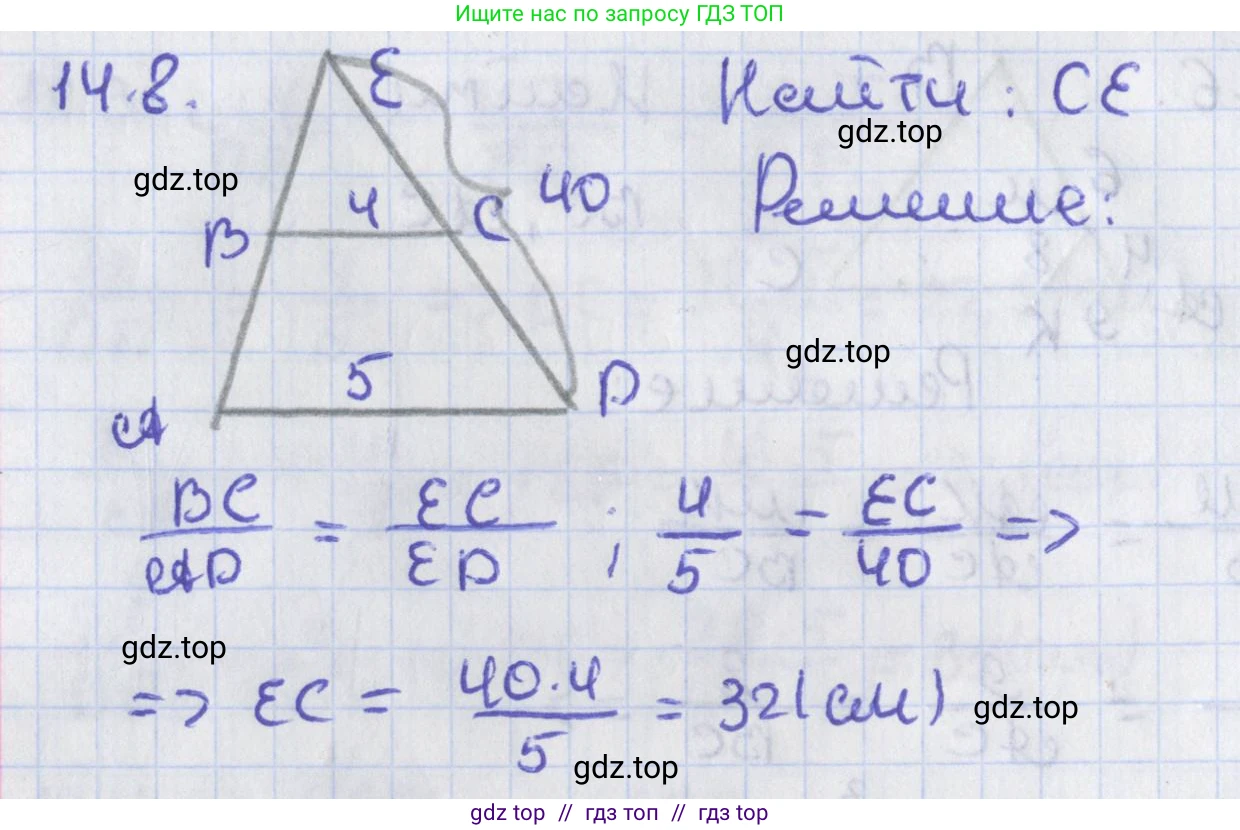 Ищите нас по запросу ГДЗ ТОП
14.8.
E
Найти: CE
gdz.top
gdz.top
Решение:
4
40
B
C
gdz.top
5
D
A
BC/AD = EC/ED ; 4/5 = EC/40 =>
gdz.top
=> EC = 40·4/5 = 32(см)
gdz.top
gdz.top
gdz top // гдз топ // gdz top